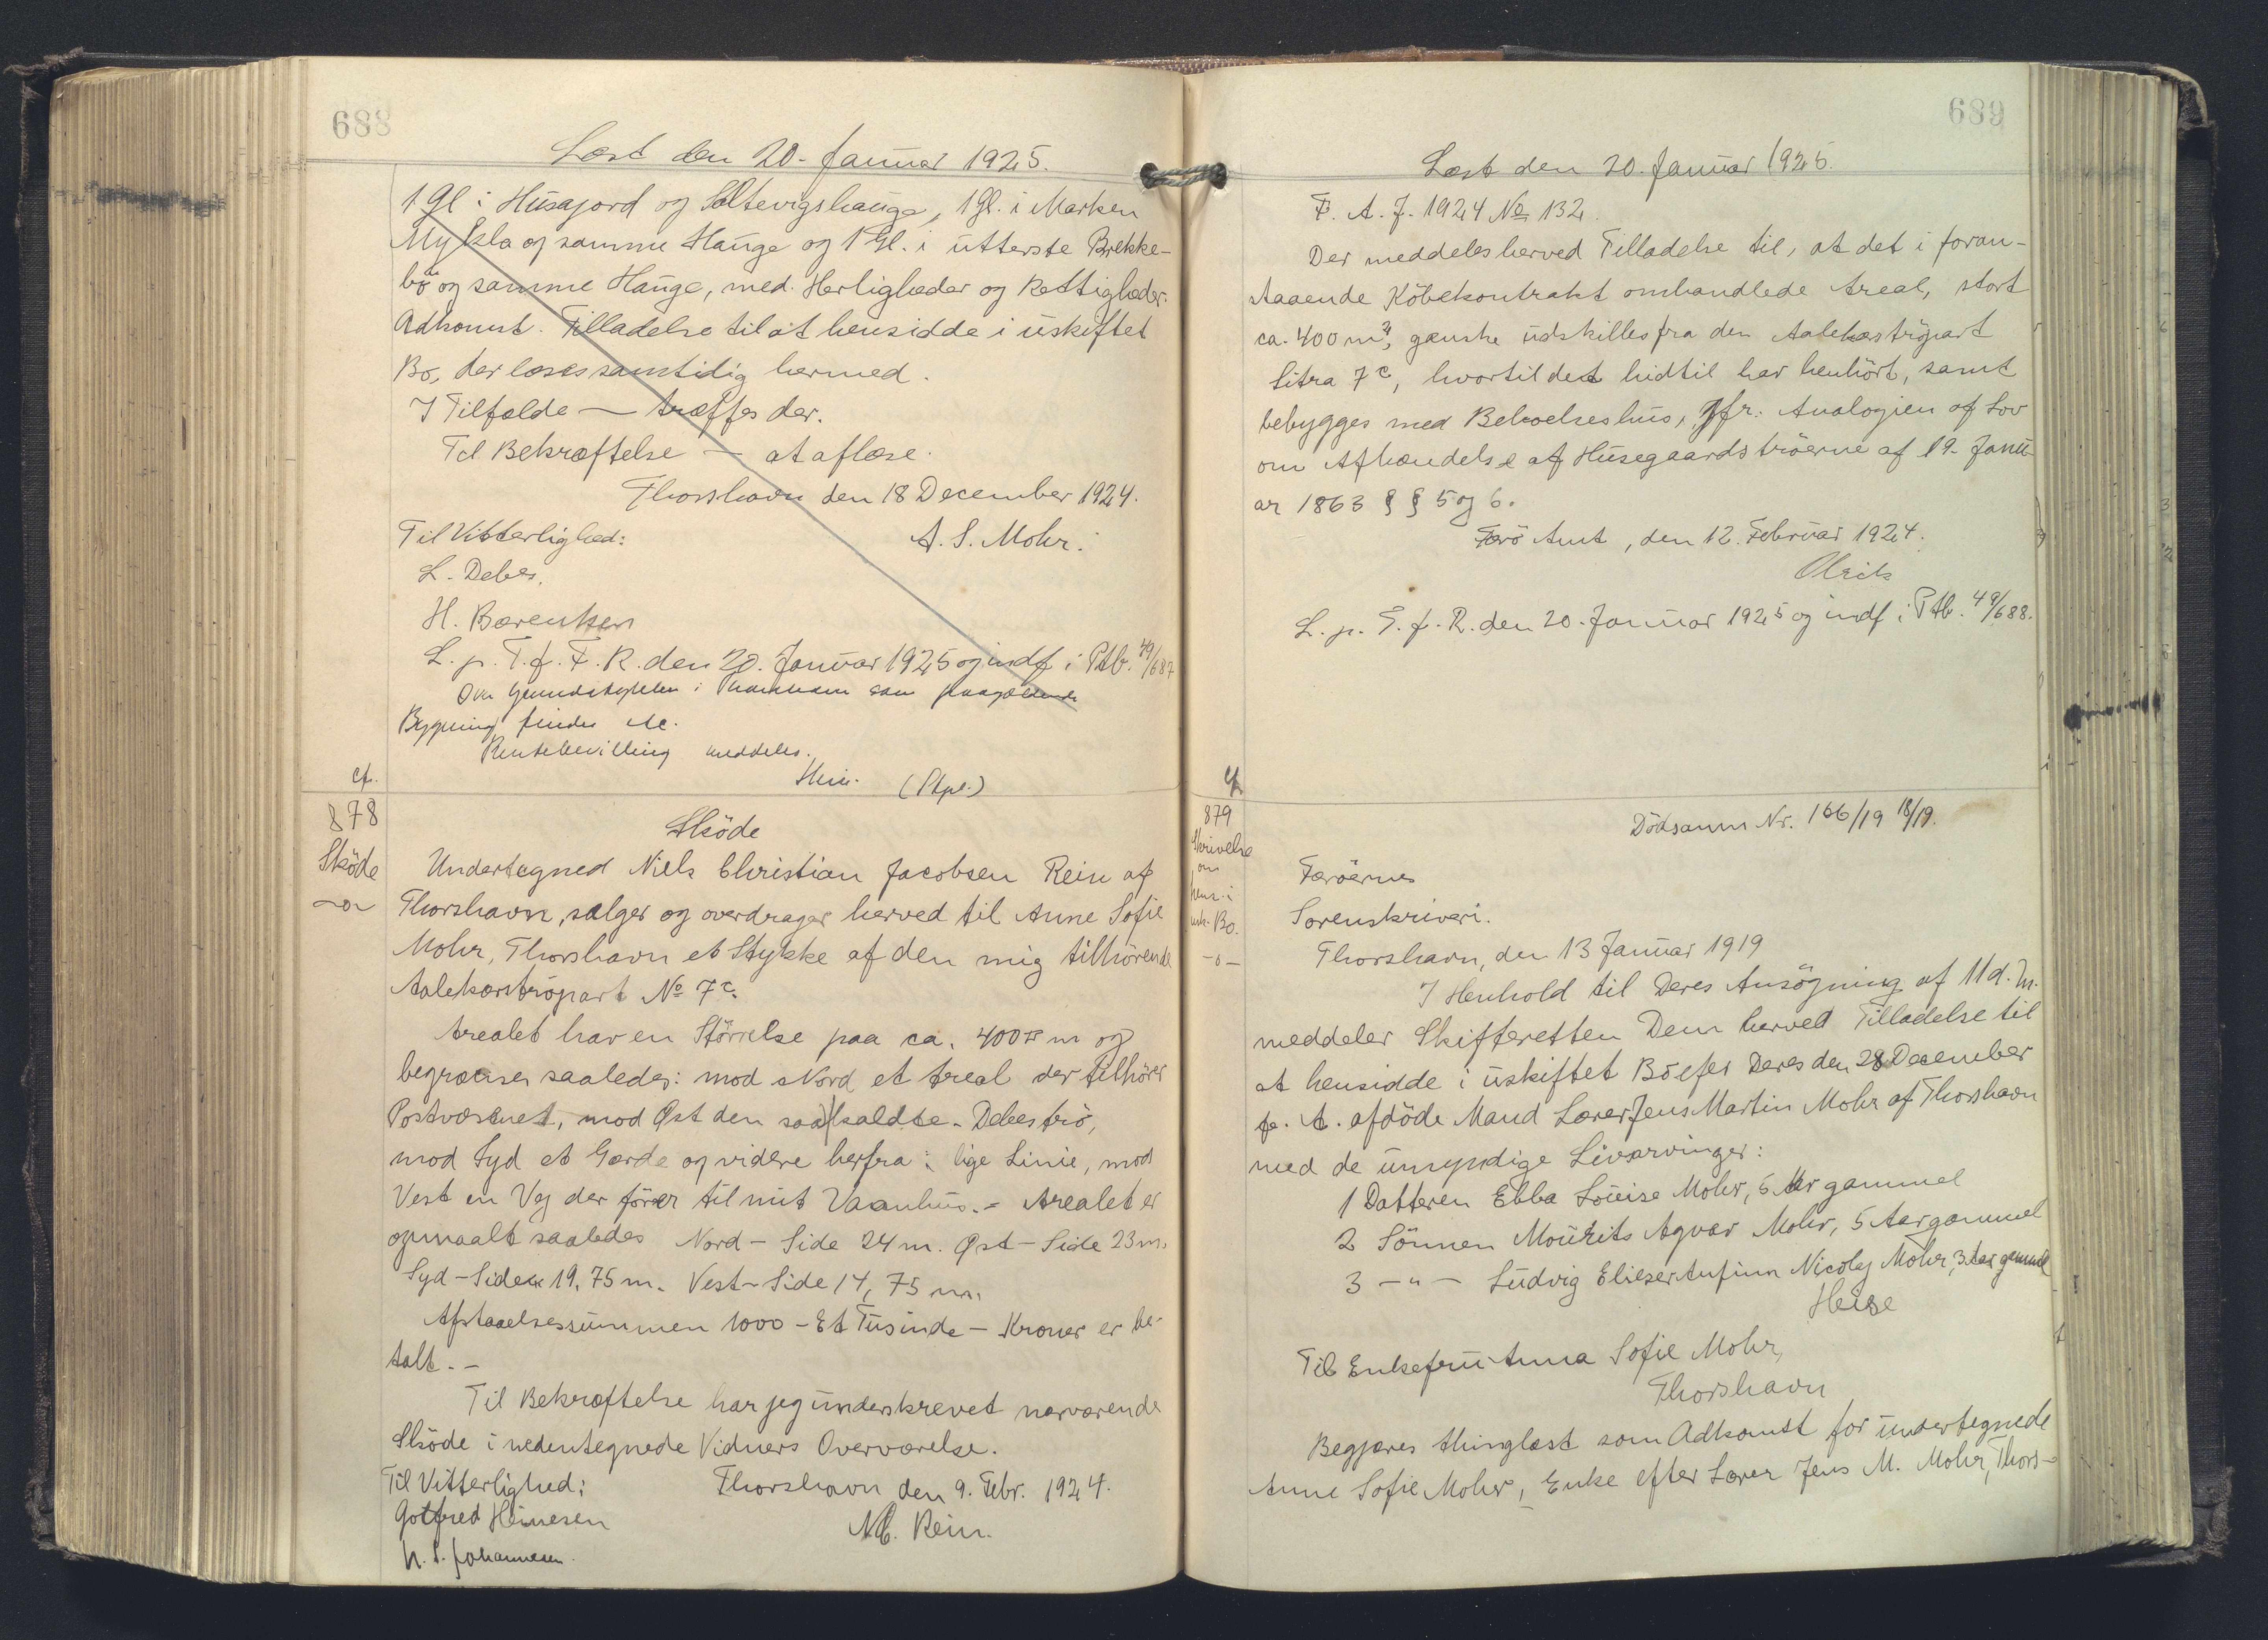 688
Læst den 20. Januar 1925.
1 Gl i Húsajord og Sáltevigshauge, 1 gl. i Marken
Mykla og samme Hauge og 1 Gl. i útterste Brekke-
bö og samme Hauge, med Herligheder og Rettigheder.
Adkomst. Tilladelse til at hensidde i uskiftet
Bo, der læses samtidig hermed.
I Tilfælde — træffes der.
Til Bekræftelse — at aflæse.
Thorshavn den 18 December 1924.
Til Vitterlighed:
A. S. Mohr.
L. Debes.
H. Bærentsen
L. p. T. f. F. R. den 20. Januar 1925 og indf i Ptb. 49/687
Om Grundstykket i Thorshavn som paagældende
Bygning findes etc.
Rentebevilling meddeles.
Heise. (Stpl.)
cf.
878
Sköde
-o-
Sköde
Undertegned Niels Christian Jacobsen Rein af
Thorshavn, sælger og overdrager herved til Anne Sofie
Mohr, Thorshavn et Stykke af den mig tilhörende
Aalekærströpart No 7c.
Arealet har en Störrelse paa ca. 400 □ m og
begrænses saaledes: mod Nord et Areal der tilhörer
Postvæsenet, mod Øst den saakaldte Debeströ,
mod Syd et Gærde og videre herfra i lige Linie, mod
Vest en Vej der förer til mit Vaanhus. - Arealet er
opmaalt saaledes Nord - Side 24 m. Øst - Side 23 m.
Syd - Siden 19,75 m. Vest - Side 14,75 m.
Afstaaelsessummen 1000 - Et Tusinde - Kroner er be-
talt. -
Til Bekræftelse har jeg underskrevet nærværende
Sköde i nedentegnede Vidners Overværelse.
Til Vitterlighed:
Thorshavn den 9. Febr. 1924.
Gotfred Heinesen
N.C. Rein.
h. S. Johannesen.
689
Læst den 20. Januar 1925.
F. A. J. 1924 No 132.
Der meddeles herved Tilladelse til, at det i foran-
staaende Köbekontrakt omhandlede Areal, stort
ca. 400 m², ganske udskilles fra den Aalekæströpart
Litra 7c, hvortil det hidtil har henhört, samt
bebygges med Beboelseshus, jfr. Analogien af Lov
om Afhændelse af Husegaardströerne af 19. Janu-
ar 1863 § § 5 og 6.
Færö Amt, den 12. Februar 1924.
Olrik
L. p. T. f. R. den 20. Januar 1925 og indf i Ptb. 49/688.
cf.
879
Skrivelse
om
hens. i
usk. Bo.
-o-
Dödsanm Nr. 166/19 18/19.
Færöernes
Sorenskriveri.
Thorshavn, den 13 Januar 1919
I Henhold til Deres Ansögning af 11 d. M.
meddeler Skifteretten Dem herved Tilladelse til
at hensidde i uskiftet Bo efter Deres den 28 December
f. A. afdöde Mand Lærer Jens Martin Mohr af Thorshavn
med de umyndige Livsarvinger:
1 Datteren Ebba Louise Mohr, 6 Aar gammel
2 Sönnen Mourits Agvar Mohr, 5 Aar gammel
3 - " - Ludvig Elieser Anfinn Nicolaj Mohr, 3 Aar gammel
Heise
Til Enkefru Anna Sofie Mohr,
Thorshavn
Begjæres thinglæst som Adkomst for undertegnede
Anne Sofie Mohr, Enke efter Lærer Jens M. Mohr, Thors-